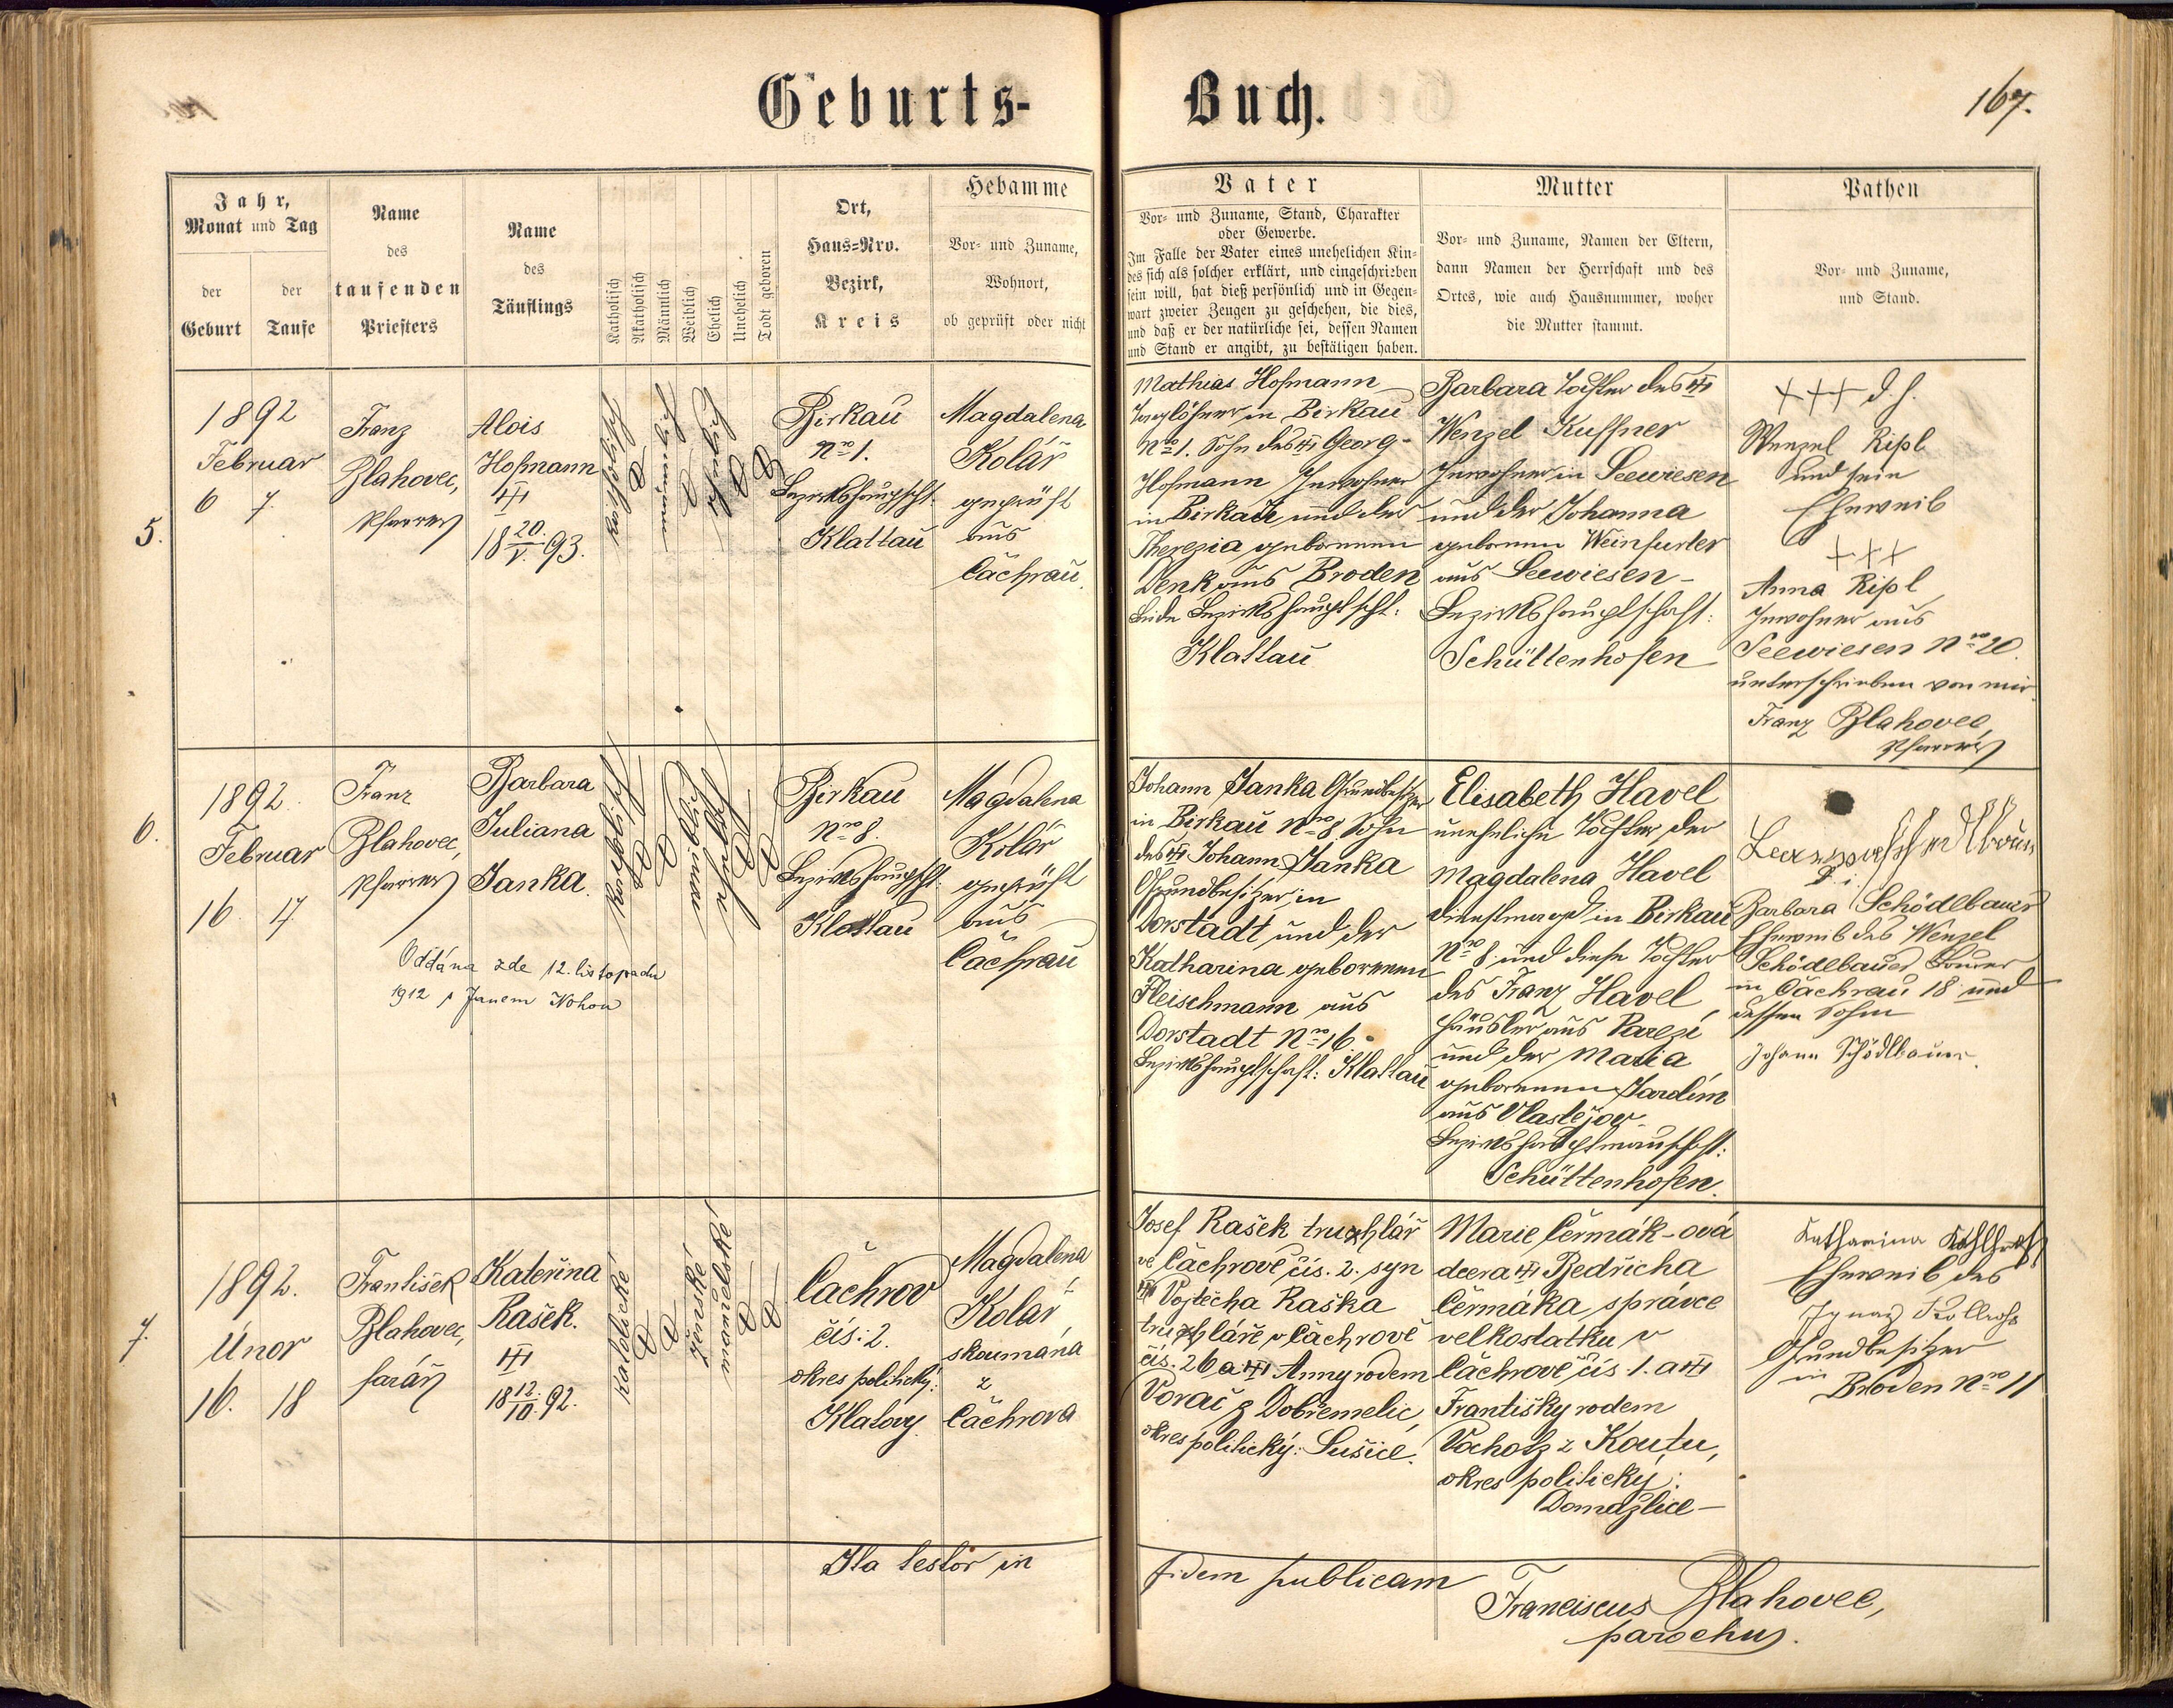 Geburts-
Buch.
167.
Jahr,
Monat und Tag
der Geburt
der Taufe
Name
des
taufenden
Priesters
Name
des
Täuflings
Katholisch
Akatholisch
Männlich
Weiblich
Ehelich
Unehelich
Todt geboren
Ort,
Haus=Nro.
Bezirk,
Kreis
Hebamme
Vor- und Zuname,
Wohnort,
ob geprüft oder nicht
Vater
Vor- und Zuname, Stand, Charakter
oder Gewerbe.
Im Falle der Vater eines unehelichen Kin-
des sich als solcher erklärt, und eingeschrieben
sein will, hat dieß persönlich und in Gegen-
wart zweier Zeugen zu geschehen, die dies,
und daß er der natürliche sei, dessen Namen
und Stand er angibt, zu bestätigen haben.
Mutter
Vor- und Zuname, Namen der Eltern,
dann Namen der Herrschaft und des
Ortes, wie auch Hausnummer, woher
die Mutter stammt.
Pathen
Vor- und Zuname,
und Stand.
5.
1892
Februar
6 7.
Franz
Blahovec,
Pfarrer
Alois
Hofmann
20.
18 V. 93.
katholisch
männlich
ehelich
Birkau
Nro 1.
Bezirkshauptscht.
Klattau
Magdalena
Kolář
geprüft
aus
Čachrau.
Mathias Hofmann
Taglöhner in Birkau
Nro 1. Sohn des Georg
Hofmann Inwohner
in Birkau und der
Therezia geborenen
Denk aus Broden
beide Bezirkshauptscht:
Klattau
Barbara Tochter des
Wenzel Kuffner
Inwohner in Seewiesen
und der Johanna
geborenen Weinfurter
aus Seewiesen -
Bezirkshauptschaft:
Schüttenhofen
+++ d. h.
Wenzel Ripl
und sein
Eheweib
+++
Anna Ripl
Inwohner aus
Seewiesen Nro 20.
unterschrieben von mir
Franz Blahovec,
Pfarrer
6.
1892.
Februar
16 17.
Franz
Blahovec,
Pfarrer
Barbara
Juliana
Janka.
Oddána zde 12. listopadu
1912 s Janem Nohou
katholisch
weiblich
ehelich
Birkau
Nro 8.
Bezirkshauptscht.
Klattau
Magdalena
Kolář
geprüft
aus
Čachrau
Johann Janka Grundbesitzer
in Birkau Nro 8 Sohn
des Johann Janka
Grundbesitzer in
Dorstadt und der
Katharina geborenen
Fleischmann aus
Dorstadt Nro 16.
Bezirkshauptschaft: Klattau
Elisabeth Havel
uneheliche Tochter der
Magdalena Havel
Dienstmagd in Birkau
Nro 8. und diese Tochter
des Franz Havel,
Häusler aus Parezí
und der Maria
geborenen Jardim
aus Vlastějov
Bezirkshauptmannschaft:
Schüttenhofen.
d. i.
Barbara Schödlbauer
Eheweib des Wenzel
Schödelbauer Bauer
in Čachrau 18 und
dessen Sohn
Johann Schödlbauer
7.
1892.
Únor
16. 18
František
Blahovec,
farář
Kateřina
Rašek.
12.
18 10. 92.
katolické
ženské
manželské
Čachrov
čís: 2.
okres politický:
Klatovy.
Magdalena
Kolář
zkoumána
z
Čachrova
Josef Rašek truhlář
ve Čachrově čís. 2. syn
Vojtěcha Raška
truhláře v Čachrově
čís. 26 a Anny rodem
Voráč z Dobřemelic
okres politický: Sušice.
Marie Čermák-ová
dcera Bedřicha
Čermáka, správce
velkostatku v
Čachrově čís. 1. a
Františky rodem
Vocholz z Koutu,
okres politický:
Domažlice -
Katharina
Eheweib des
Ignaz
Grundbesitzer
in
Broden Nro 11
Ita testor in
fidem publicam
Franciscus Blahovec,
parochus.